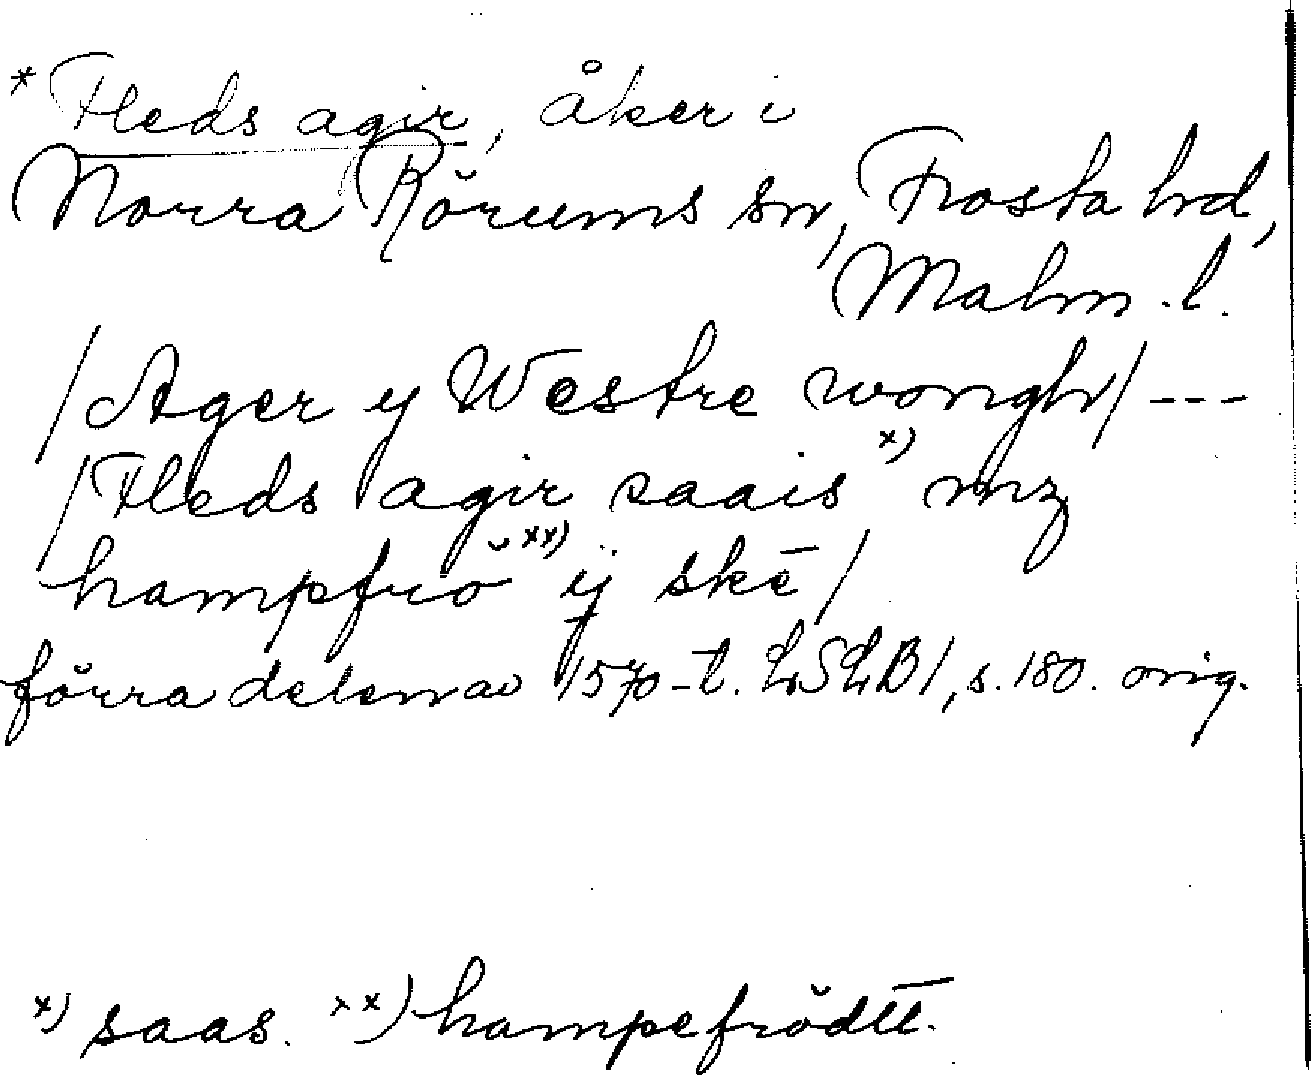 * Fleds agir, åker i
Norra Rörums sn, Frosta hd,
Malm. l.
/Ager y Westre wongh/ ---
/Fleds agir saais x) mz
hampfrö xx) ÿ skē/
förra delen av 1570-t. LSLB1, s. 180. orig.
x) saas. xx) hampefrödtt.